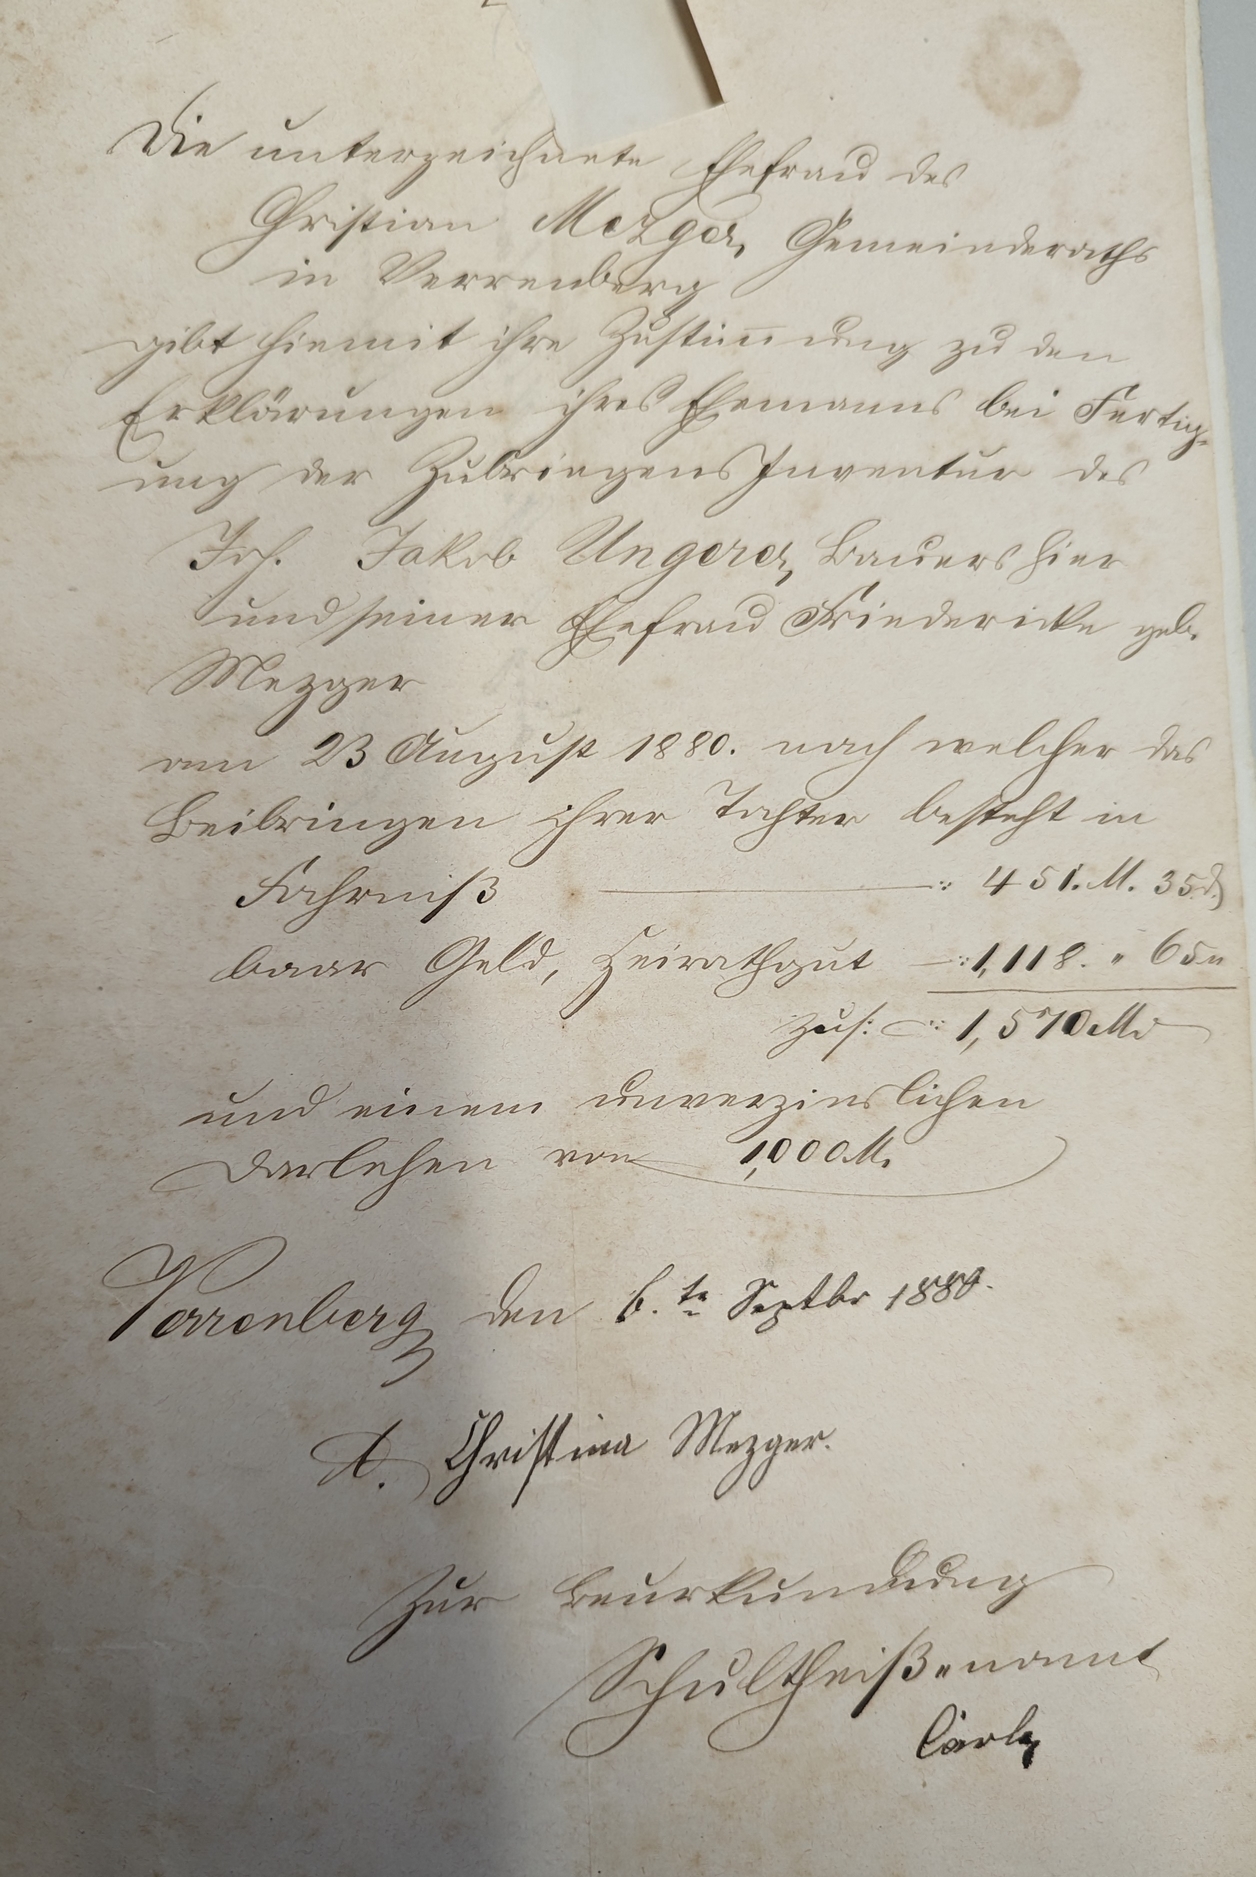 Die unterzeichnete Ehefrau des
Christian Mezger, Gemeinderaths
in Verrenberg
gibt hiemit ihre Zustimmung zu den
Erklärungen ihres Ehemanns bei Fertig-
ung der Zubringens Inventur des
Joh. Jakob Ungerer, Bauers hier
und seiner Ehefrau Friedericke geb.
Mezger
am 23 August 1880. nach welcher das
Beibringen ihrer Tochter besteht in
Fahrniß —: 451. M. 35 d.
baar Geld, Heirathgut —: 1,118. " 65 "
zus: —: 1,570 M
und einem unverzinslichen
Darlehen von 1,000 M.
Verrenberg den 6. te Septbr 1880.
t. Christina Mezger.
Zur Beurkundung
Schultheißenamt